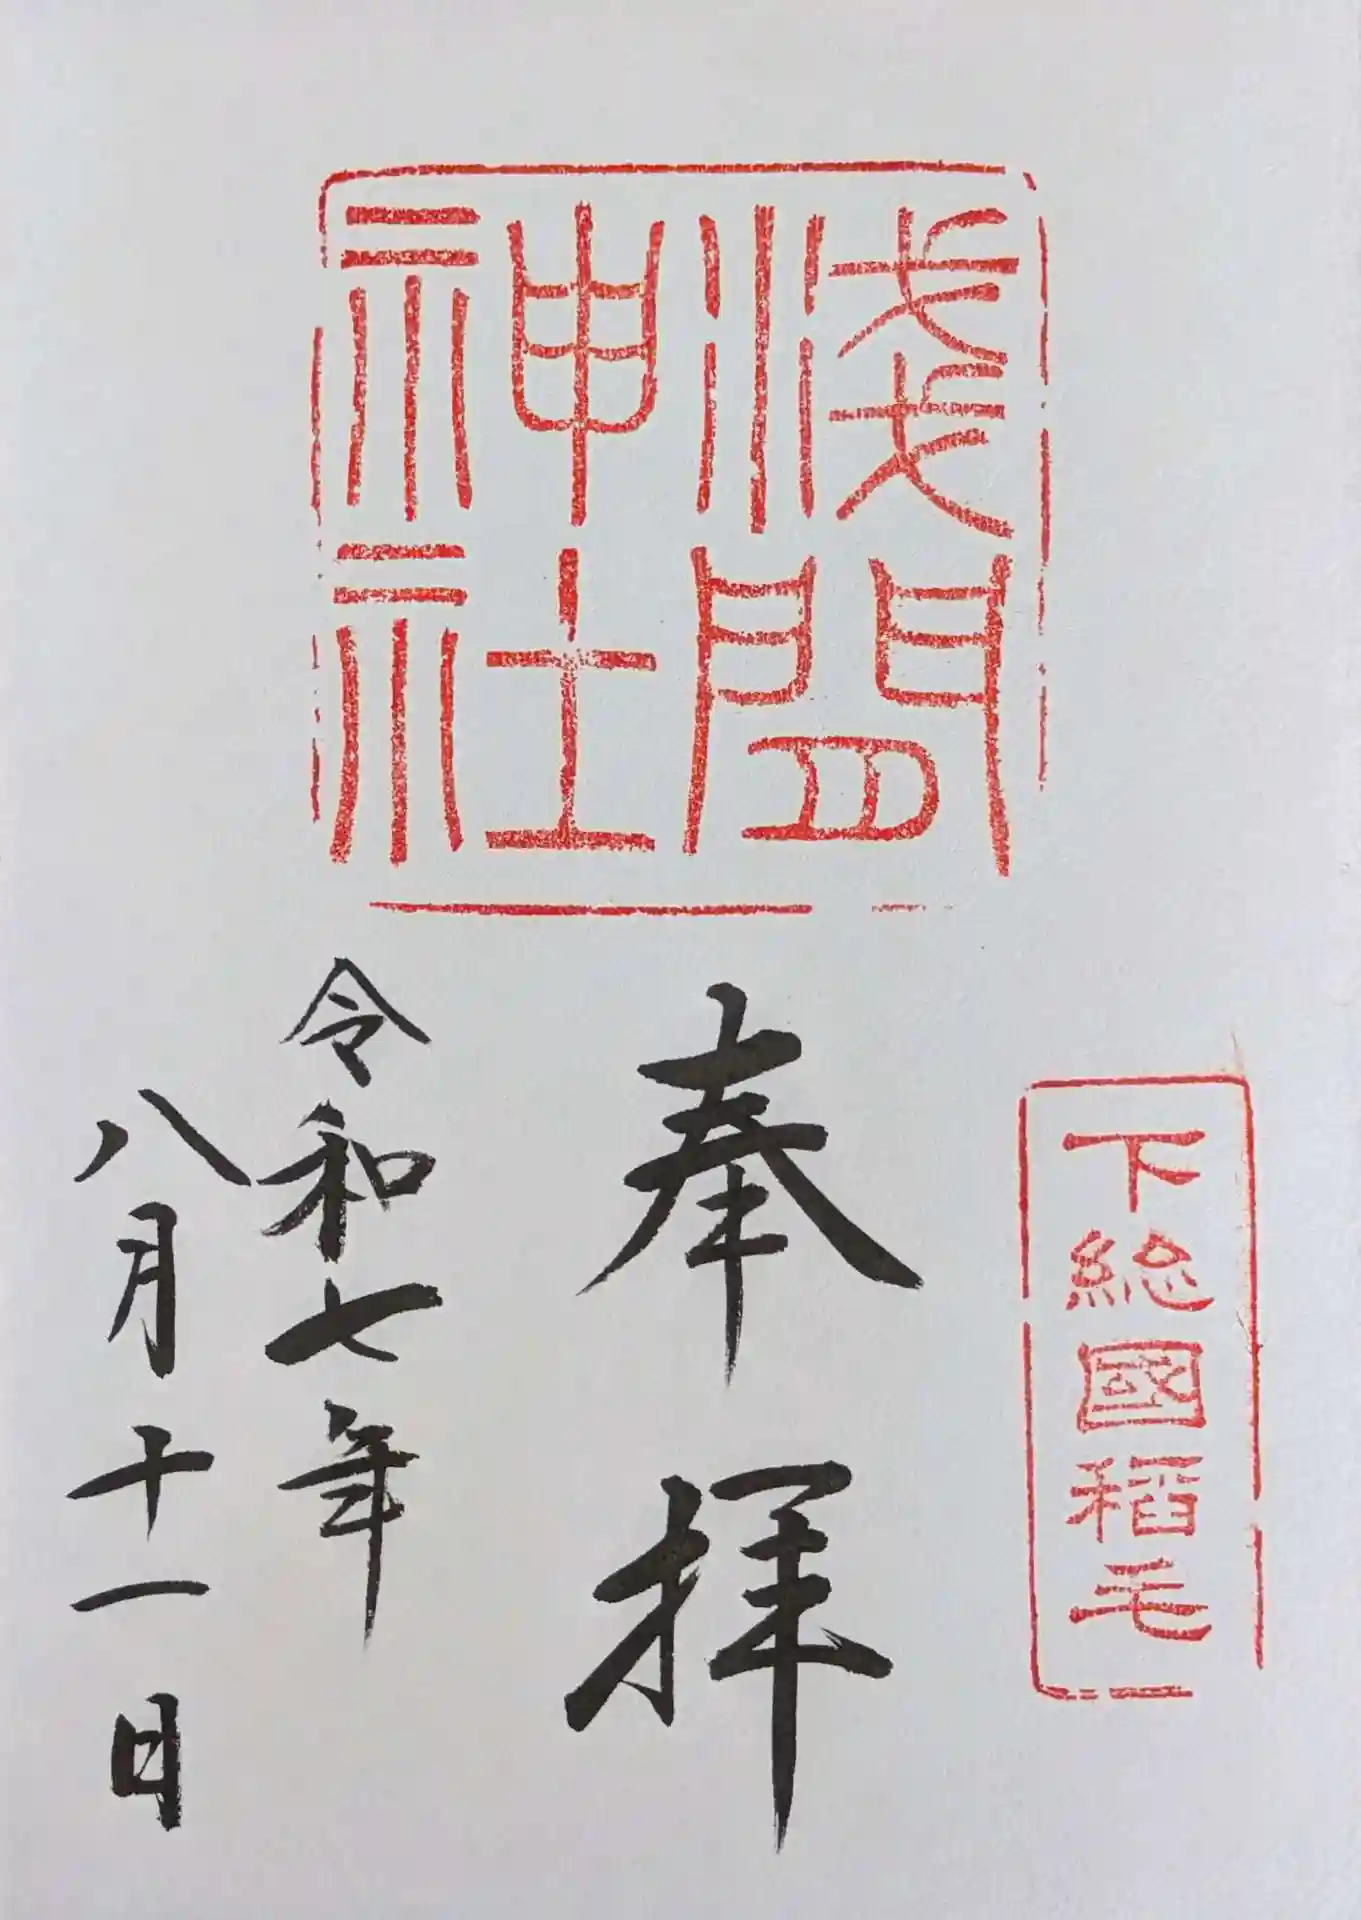 浅間
神社
下総國稲毛
奉拝
令和七年
八月十一日